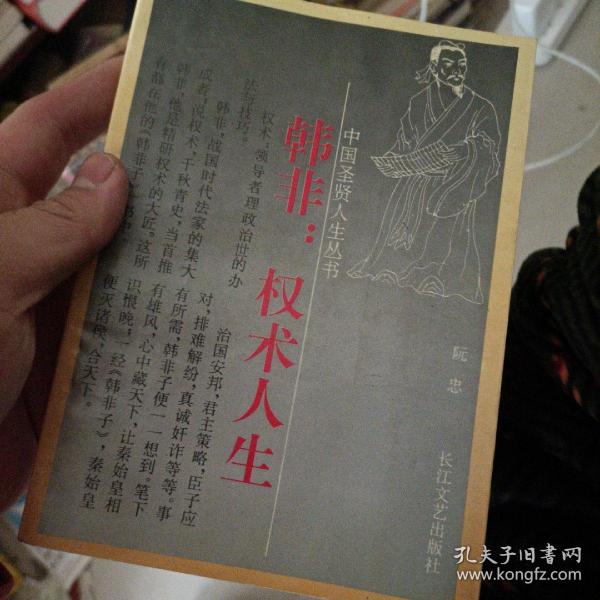 中国圣贤人生丛书
韩非：权术人生
阮忠
长江文艺出版社
权术：领导者理政治世的办
法与技巧。
韩非，战国时代法家的集大
成者。说权术，千秋青史，当首推
韩非，他是精研权术的大匠。这所
有都在他的《韩非子》书中。
治国安邦，君主策略，臣子应
对，排难解纷，真诚奸诈等等。事
有所需，韩非子便一一想到。笔下
有雄风，心中藏天下，让秦始皇相
识恨晚；一经《韩非子》，秦始皇
便灭诸侯，合天下。
孔夫子旧书网
www.kongfz.com